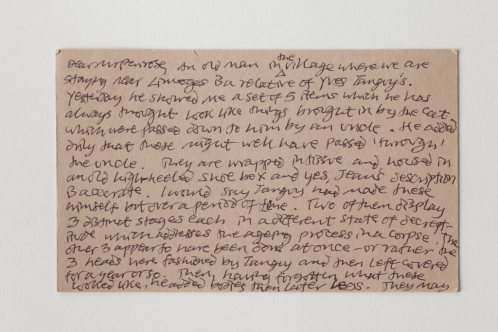 Dear Mr Penrose, An old man in the village where we are
staying near Limoges is a relative of Yves Tanguy's.
Yesterday he showed me a set of 5 items which he has
always thought look like things brought in by the cat
which were passed down to him by an uncle. He added
drily that these might well have passed 'through'
the uncle. They are wrapped in tissue and housed in
an old high-heeled shoe box and yes, Jean's description
is accurate. I would say Tanguy had made these
himself but over a period of time. Two of them display
3 distinct stages each in a different state of decrept-
itude which addresses the ageing process in a corpse. The
other 3 appear to have been done at once - or rather the
3 heads were fashioned by Tanguy and then left covered
for a year or so. Then, having forgotten what these
looked like, he added bodies then later legs. They may